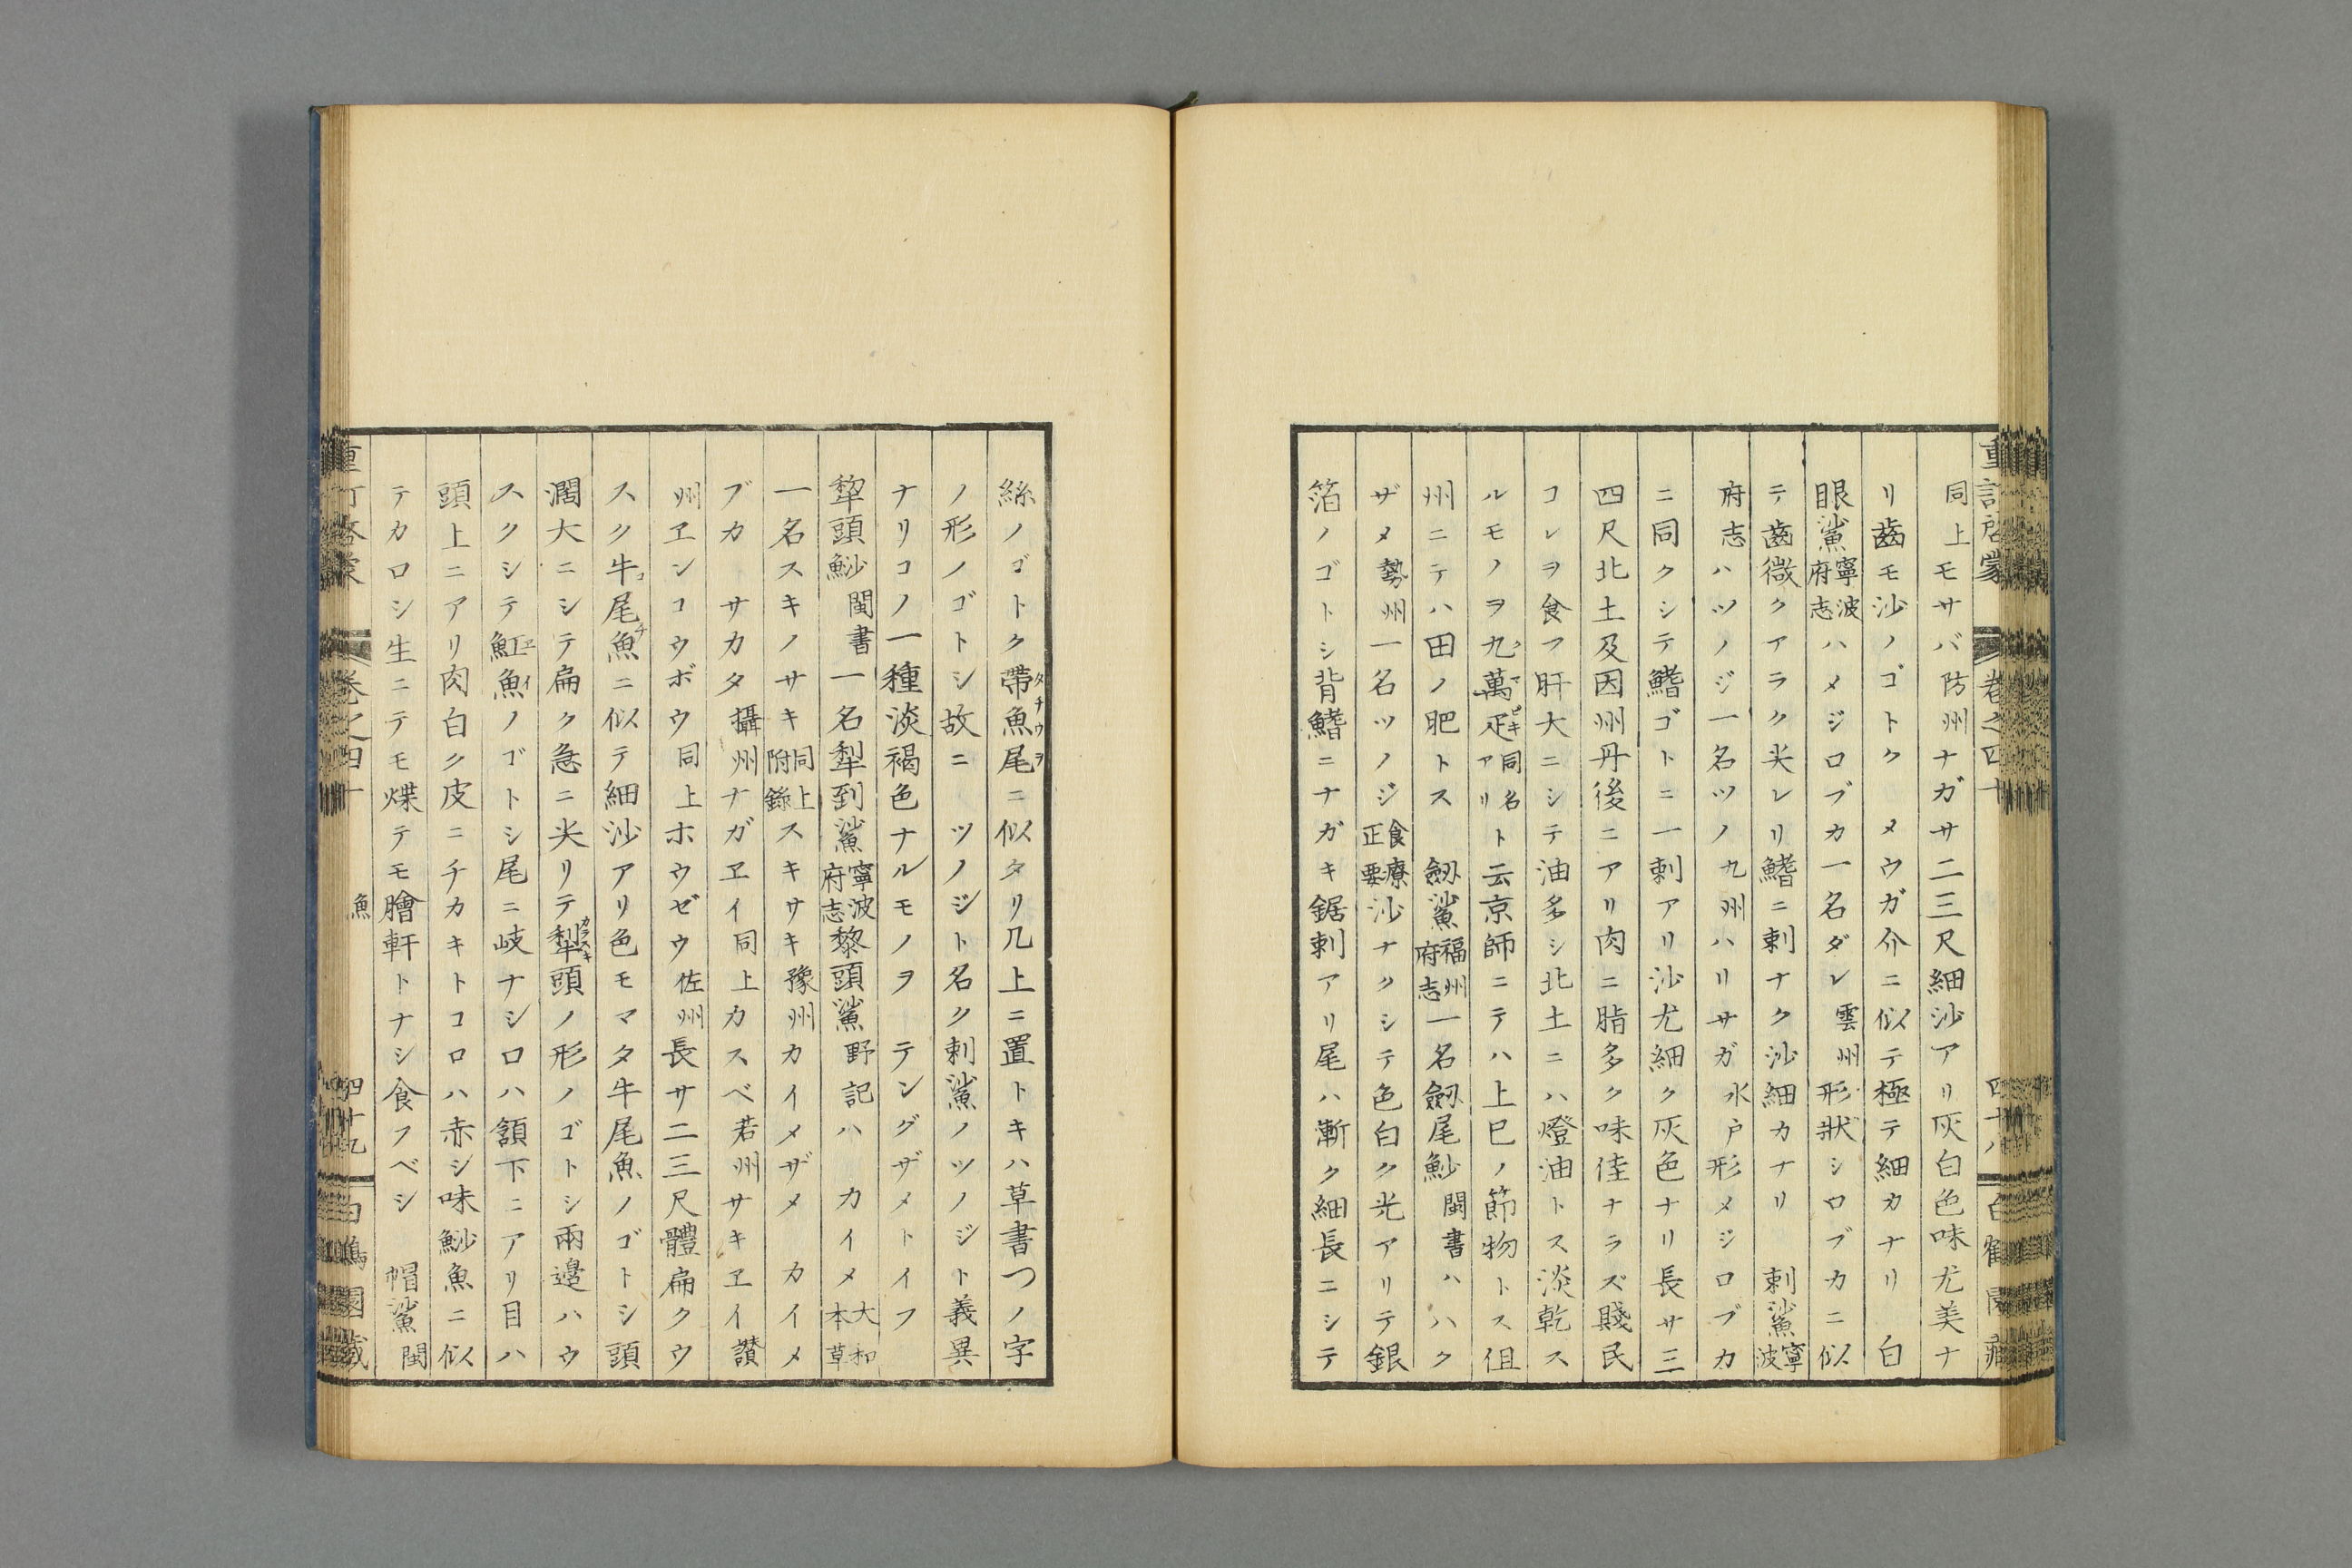 重訂啓蒙 卷之四十 四十八
同上モサバ防州ナガサ二三尺細沙アリ灰白色味尤美ナ
リ齒モ沙ノゴトク メウガ介ニ似テ極テ細カナリ 白
眼鯊寧波府志ハメジロブカ一名ダレ雲州形狀シロブカニ似
テ齒微クアラク尖レリ鰭ニ刺ナク沙細カナリ 刺鯊寧波
府志ハツノジ一名ツノ九州ハリサガ水戸形メジロブカ
ニ同クシテ鰭ゴトニ一刺アリ沙尤細ク灰色ナリ長サ三
四尺北土及因州丹後ニアリ肉ニ脂多ク味佳ナラズ賤民
コレヲ食フ肝大ニシテ油多シ北土ニハ燈油トス淡乾ス
ルモノヲ九萬疋クマビキ同名アリト云京師ニテハ上巳ノ節物トス但
州ニテハ田ノ肥トス 劔鯊福州府志一名劔尾魦閩書ハハク
ザメ勢州一名ツノジ食療正要沙ナクシテ色白ク光アリテ銀
箔ノゴトシ背鰭ニナガキ鋸刺アリ尾ハ漸ク細長ニシテ
絲ノゴトク帶魚タチウヲ尾ニ似タリ几上ニ置トキハ草書つノ字
ノ形ノゴトシ故ニ ツノジト名ク刺鯊ノツノジト義異
ナリコノ一種淡褐色ナルモノヲ テングザメトイフ
犂頭魦閩書一名犂到鯊寧波府志黎頭鯊野記ハ カイメ大和本草
一名スキノサキ同上附錄スキサキ豫州カイメザメ カイメ
ブカ サカタ攝州ナガヱイ同上カスベ若州サキヱイ讃
州ヱンコウボウ同上ホウゼウ佐州長サ二三尺體扁クウ
スク牛尾魚コチニ似テ細沙アリ色モマタ牛尾魚ノゴトシ頭
濶大ニシテ扁ク急ニ尖リテ犂カラスキ頭ノ形ノゴトシ兩邊ハウ
スクシテ魟魚ヱイノゴトシ尾ニ岐ナシ口ハ頷下ニアリ目ハ
頭上ニアリ肉白ク皮ニチカキトコロハ赤シ味魦魚ニ似
テカロシ生ニテモ煠テモ膾軒トナシ食フベシ 帽鯊閩
卷之四十 魚 四十九